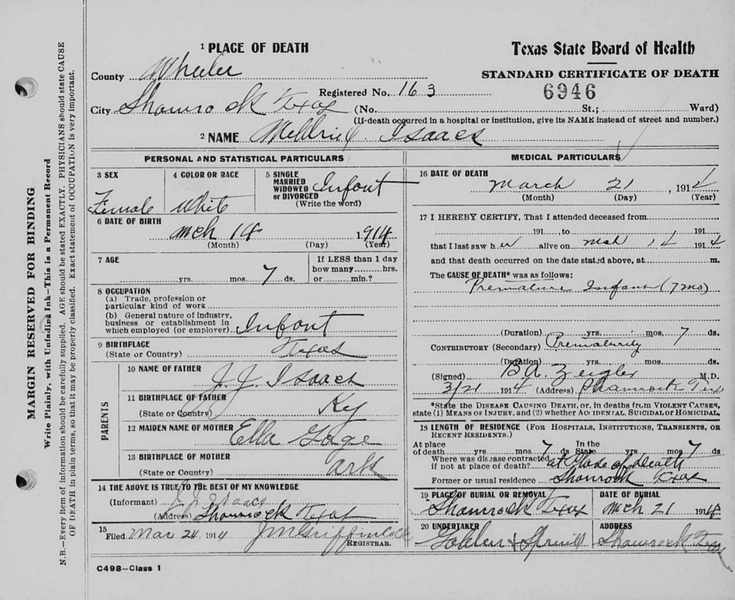 1 PLACE OF DEATH
Texas State Board of Health
STANDARD CERTIFICATE OF DEATH
County Wheeler
Registered No. 163
6946
City Shamrock Texas (No. St.; Ward)
(If death occurred in a hospital or institution, give its NAME instead of street and number.)
2 NAME Isaacs
PERSONAL AND STATISTICAL PARTICULARS
3 SEX Female
4 COLOR OR RACE White
5 SINGLE MARRIED WIDOWED or DIVORCED (Write the word) Infant
6 DATE OF BIRTH Mch 14 1914
(Month) (Day) (Year)
7 AGE yrs. mos. 7 ds.
If LESS than 1 day how many hrs. or min.?
8 OCCUPATION
(a) Trade, profession or particular kind of work
(b) General nature of industry, business or establishment in which employed (or employer) Infant
9 BIRTHPLACE (State or Country) Texas
PARENTS
10 NAME OF FATHER J. J. Isaacs
11 BIRTHPLACE OF FATHER (State or Country) Ky
12 MAIDEN NAME OF MOTHER Ella Gage
13 BIRTHPLACE OF MOTHER (State or Country) Ark
14 THE ABOVE IS TRUE TO THE BEST OF MY KNOWLEDGE
(Informant) J. J. Isaacs
(Address) Shamrock Texas
15 Filed Mar 24 1914 REGISTRAR.
C498—Class 1
MEDICAL PARTICULARS
16 DATE OF DEATH March 21, 1914
(Month) (Day) (Year)
17 I HEREBY CERTIFY, That I attended deceased from
, 191 , to 191
that I last saw her alive on Mch 14 1914
and that death occurred on the date stated above, at m.
The CAUSE OF DEATH* was as follows:
Premature Infant (7 mo)
(Duration) yrs. mos. ds.
CONTRIBUTORY (Secondary) Prematurity
(Duration) yrs. mos. 7 ds.
(Signed) B.A. Zeigler M.D.
3/21 1914 (Address) Shamrock Tex
*State the DISEASE CAUSING DEATH, or, in deaths from VIOLENT CAUSES, state (1) MEANS OF INJURY, and (2) whether ACCIDENTAL SUICIDAL OR HOMICIDAL.
18 LENGTH OF RESIDENCE (FOR HOSPITALS, INSTITUTIONS, TRANSIENTS, OR RECENT RESIDENTS.)
At place of death yrs. mos. 7 ds. In the State yrs. mos. 7 ds.
Where was disease contracted if not at place of death? at Place of Death
Former or usual residence Shamrock Texas
19 PLACE OF BURIAL OR REMOVAL Shamrock Texas
Mch 21 1914
20 UNDERTAKER
ADDRESS Shamrock Tex
MARGIN RESERVED FOR BINDING
Write Plainly, with Unfading Ink—This is a Permanent Record
N.B.—Every item of information should be carefully supplied. AGE should be stated EXACTLY. PHYSICIANS should state CAUSE
OF DEATH in plain terms, so that it may be properly classified. Exact statement of OCCUPATION is very important.